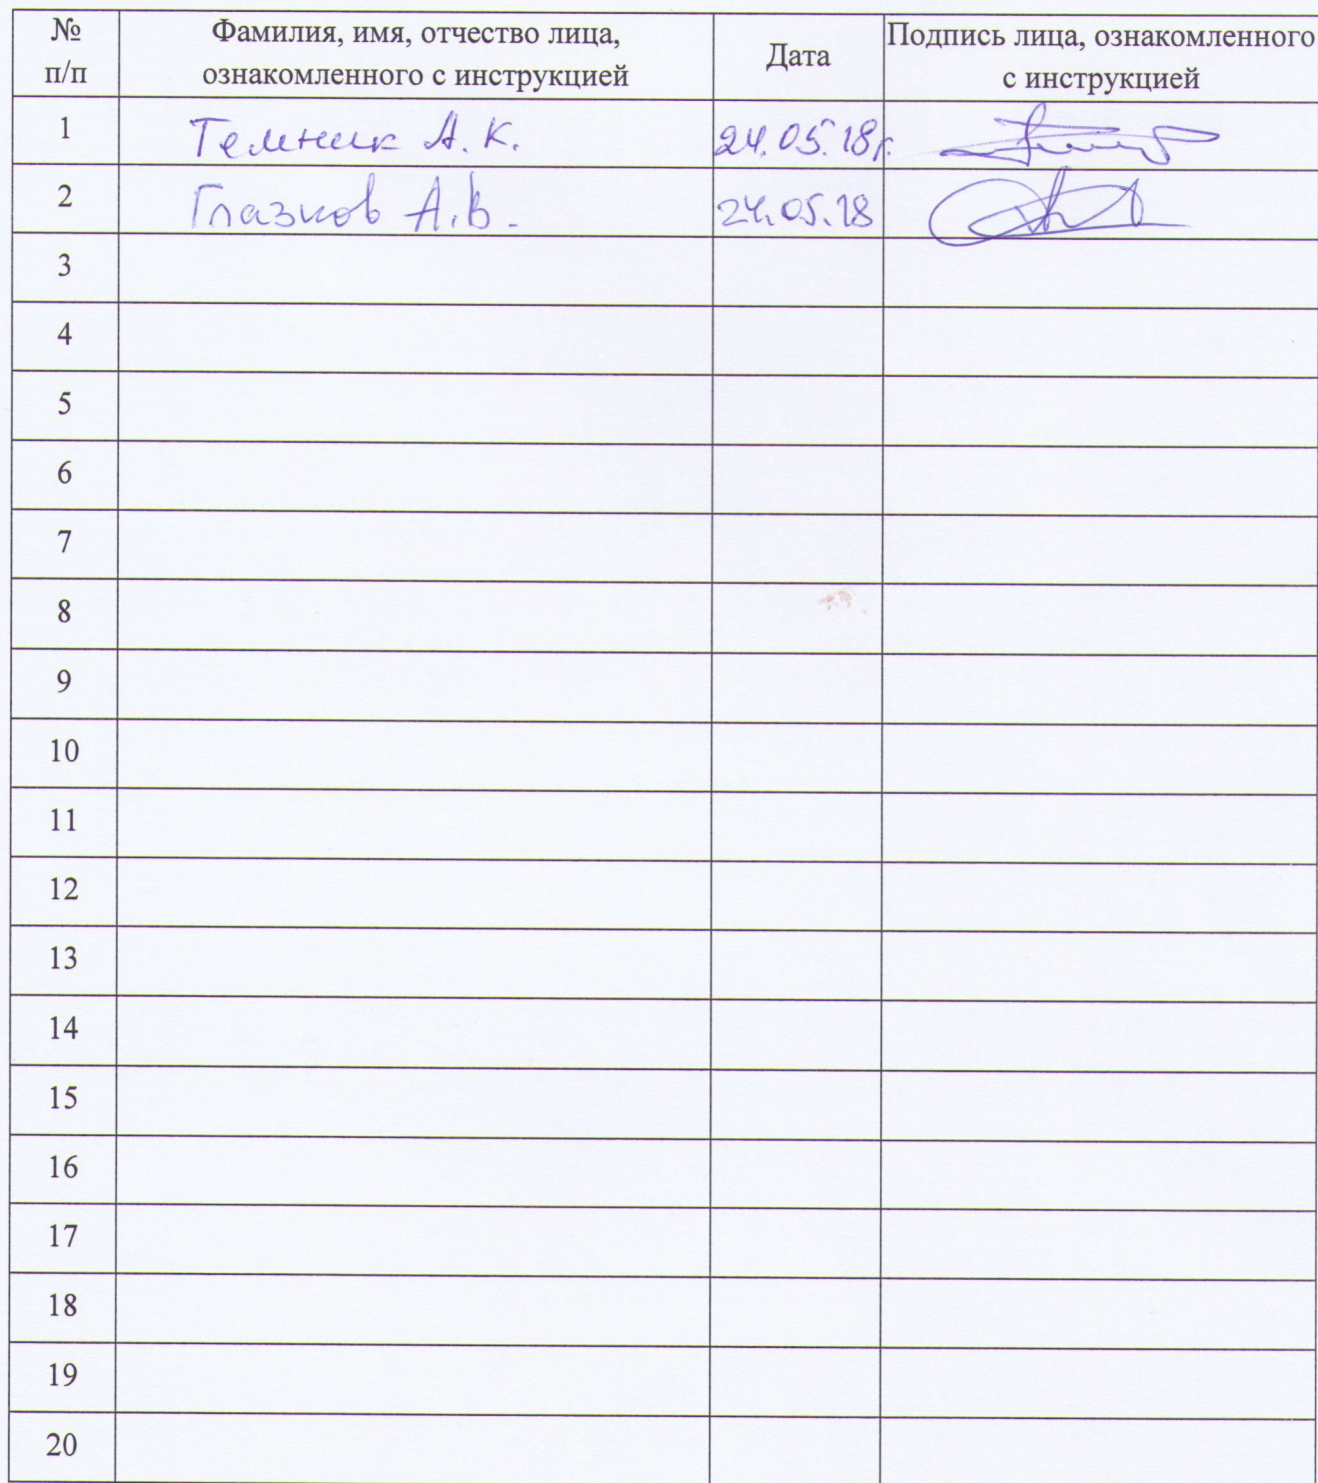 № п/п Фамилия, имя, отчество лица, ознакомленного с инструкцией Дата Подпись лица, ознакомленного с инструкцией
1 Темник А.К. 24.05.18г.
2 Глазков А.В. 24.05.18
3
4
5
6
7
8
9
10
11
12
13
14
15
16
17
18
19
20